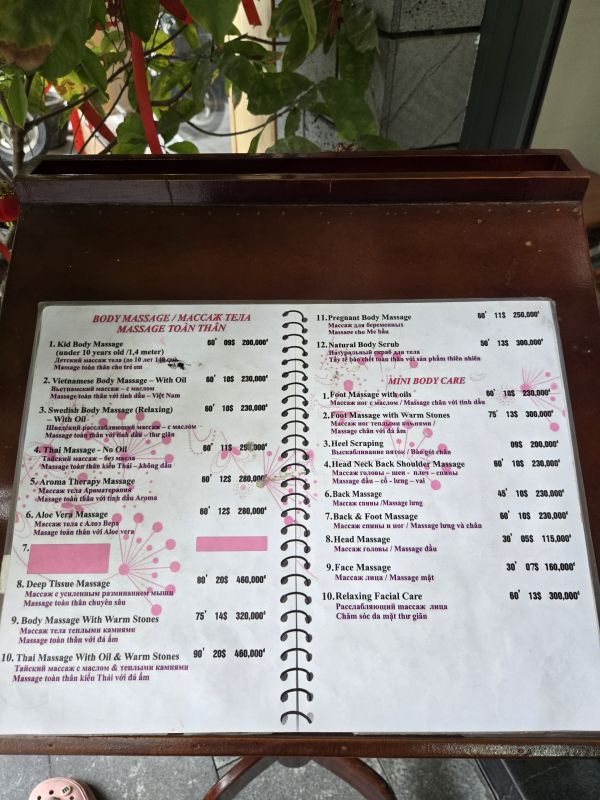 BODY MASSAGE / МАССАЖ ТЕЛА
MASSAGE TOÀN THÂN
1. Kid Body Massage 60' 09$ 200,000đ
(under 10 years old /1,4 meter)
Детский массаж тела (до 10 лет 140 cm)
Massage toàn thân cho trẻ em
2. Vietnamese Body Massage – With Oil 60' 10$ 230,000đ
Вьетнамский массаж – с маслом
Massage toàn thân với tinh dầu – Việt Nam
3. Swedish Body Massage (Relaxing) 60' 10$ 230,000đ
– With Oil
Шведский расслабляющий массаж – с маслом
Massage toàn thân với tinh dầu – thư giãn
4. Thai Massage - No Oil 60' 11$ 250,000đ
Тайский массаж – без масла
Massage toàn thân kiểu Thái – không dầu
5. Aroma Therapy Massage 60' 12$ 280,000đ
Массаж тела Ароматерапия
Masage toàn thân với tinh dầu Aroma
6. Aloe Vera Massage 60' 12$ 280,000đ
Массаж тела с Алоэ Вера
Masage toàn thân với Aloe vera
7.
8. Deep Tissue Massage 80' 20$ 460,000đ
Массаж с усиленным разминанием мышц
Massage toàn thân chuyên sâu
9. Body Massage With Warm Stones 75' 14$ 320,000đ
Массаж тела теплыми камнями
Massage toàn thân với đá ấm
10. Thai Massage With Oil & Warm Stones 90' 20$ 460,000đ
Тайский массаж с маслом & теплыми камнями
Massage toàn thân kiểu Thái với đá ấm
11. Pregnant Body Massage 60' 11$ 250,000đ
Массаж для беременных
Massage cho Mẹ bầu
12. Natural Body Scrub 50' 13$ 300,000đ
Натуральный скраб для тела
Tẩy tế bào chết toàn thân với sản phẩm thiên nhiên
MINI BODY CARE
1. Foot Massage with oils 60' 10$ 230,000đ
Массаж ног с маслом / Massage chân với tinh dầu
2. Foot Massage with Warm Stones 75' 13$ 300,000đ
Массаж ног теплыми камнями /
Massage chân với đá ấm
3. Heel Scraping 09$ 200,000đ
Выскабливание пяток / Bào gót chân
4. Head Neck Back Shoulder Massage 60' 10$ 230,000đ
Массаж головы – шеи - плеч – спины
Massage đầu – cổ - lưng – vai
6. Back Massage 45' 10$ 230,000đ
Массаж спины /Massage lưng
7. Back & Foot Massage 60' 10$ 230,000đ
Массаж спины и ног / Massage lưng và chân
8. Head Massage 30' 05$ 115,000đ
Массаж головы / Massage đầu
9. Face Massage 30' 07$ 160,000đ
Массаж лица / Massage mặt
10. Relaxing Facial Care 60' 13$ 300,000đ
Расслабляющий массаж лица
Chăm sóc da mặt thư giãn